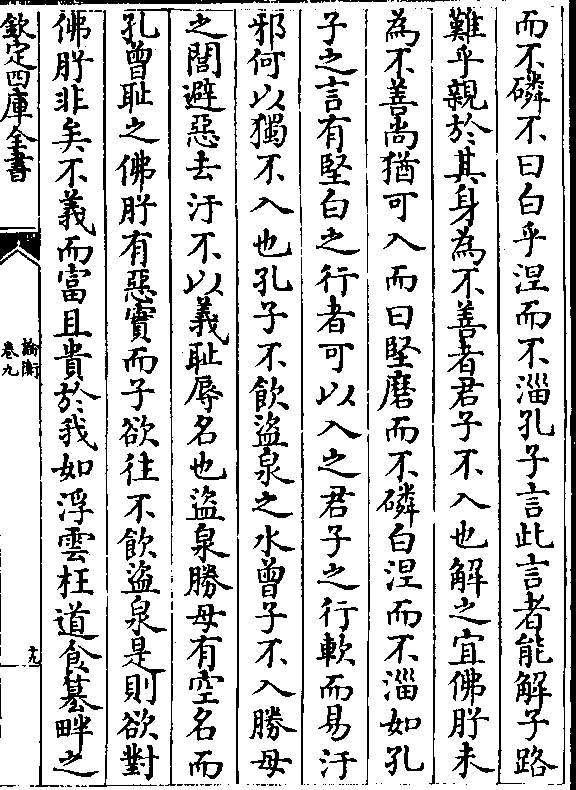 而不磷不曰白乎涅而不淄孔子言此言者能解子路
難乎親於其身為不善者君子不入也解之宜佛肸未
為不善尚猶可入而曰堅磨而不磷白涅而不淄如孔
子之言有堅白之行者可以入之君子之行軟而易汙
邪何以獨不入也孔子不飲盜泉之水曾子不入勝母
之閭避惡去汙不以義恥辱名也盜泉勝母有空名而
孔曾恥之佛肸有惡實而子欲往不飲盜泉是則欲對
佛肸非矣不義而富且貴於我如浮雲枉道食墓畔之
欽定四庫全書
論衡
卷九
十九